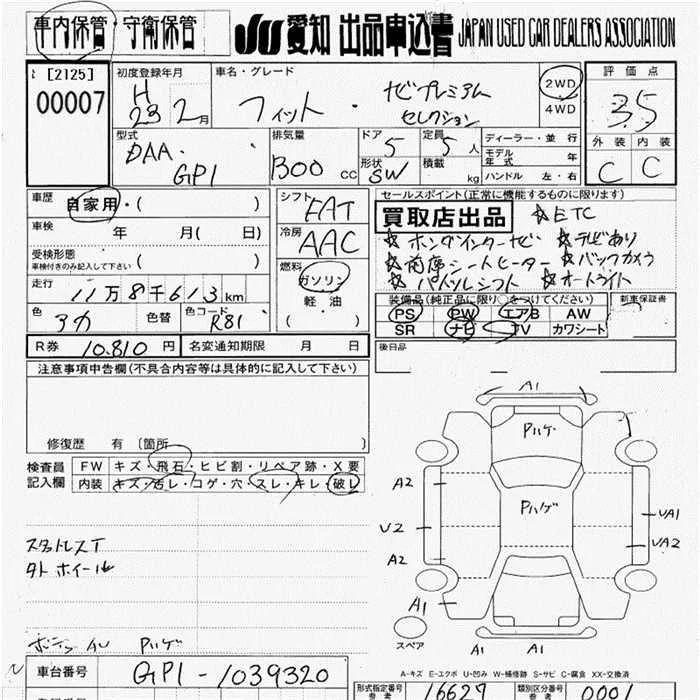 車内保管・守衛保管 JU 愛知 出品申込書 JAPAN USED CAR DEALERS ASSOCIATION
[2125] 初度登録年月 車名・グレード 2WD 評価点
00007 H 23 2月 フィット・ナビプレミアム セレクション 4WD 3.5
型式 排気量 ドア 5 定員 5人 ディーラー・並行 外装 内装
DAA・GP1 1300cc 形状 SW 積載 kg モデル年式 年 C C
ハンドル 左・右
車歴 自家用・( ) シフト FAT セールスポイント(正常に機能するものに限ります)
車検 年 月( 日) 冷房 AAC 買取店出品 ☆ETC
受検形態 ☆ホンダインターナビ ☆テレビあり
車検付きのみ記入して下さい ( ) 燃料 ☆前席シートヒーター ☆バックカメラ
走行 11万8千613km ガソリン ☆パドルシフト ☆オートライト
色 アカ 色替 色コード R81 軽油 ( ) 装備品(純正品に限り○をつけてください) 新車保証書
PS PW エアB AW
SR ナビ TV カワシート
R券 10.810円 名変通知期限 月 日 後日品
注意事項申告欄(不具合内容等は具体的に記入して下さい)
修復歴 有 〔箇所 〕
検査員 FW キズ・飛石・ヒビ割・リペア跡・X要
記入欄 内装 キズ・汚レ・コゲ・穴・スレ・キレ・破レ
A1
Pハゲ
A2 Pハゲ
U2 UA1
A2 UA2
スタットレスT
タトホイール
A1
スペア A1 A1
ボンネット AU Pハゲ
A-キズ E-エクボ U-凹み W-補修跡 S-サビ C-腐食 XX-交換済
車台番号 GP1-1039320
形式指定番号 参考 16629 類別区分番号 参考 0001